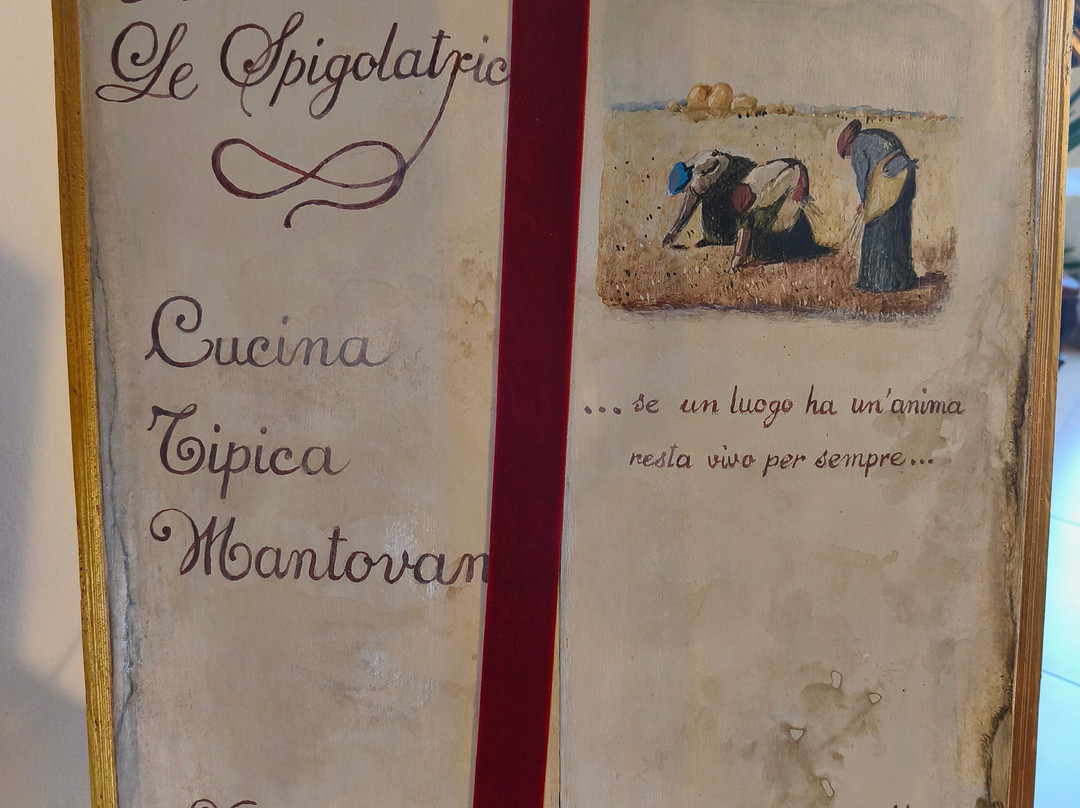 Le Spigolatric
Cucina
Tipica
Mantovan
... se un luogo ha un'anima
resta vivo per sempre...